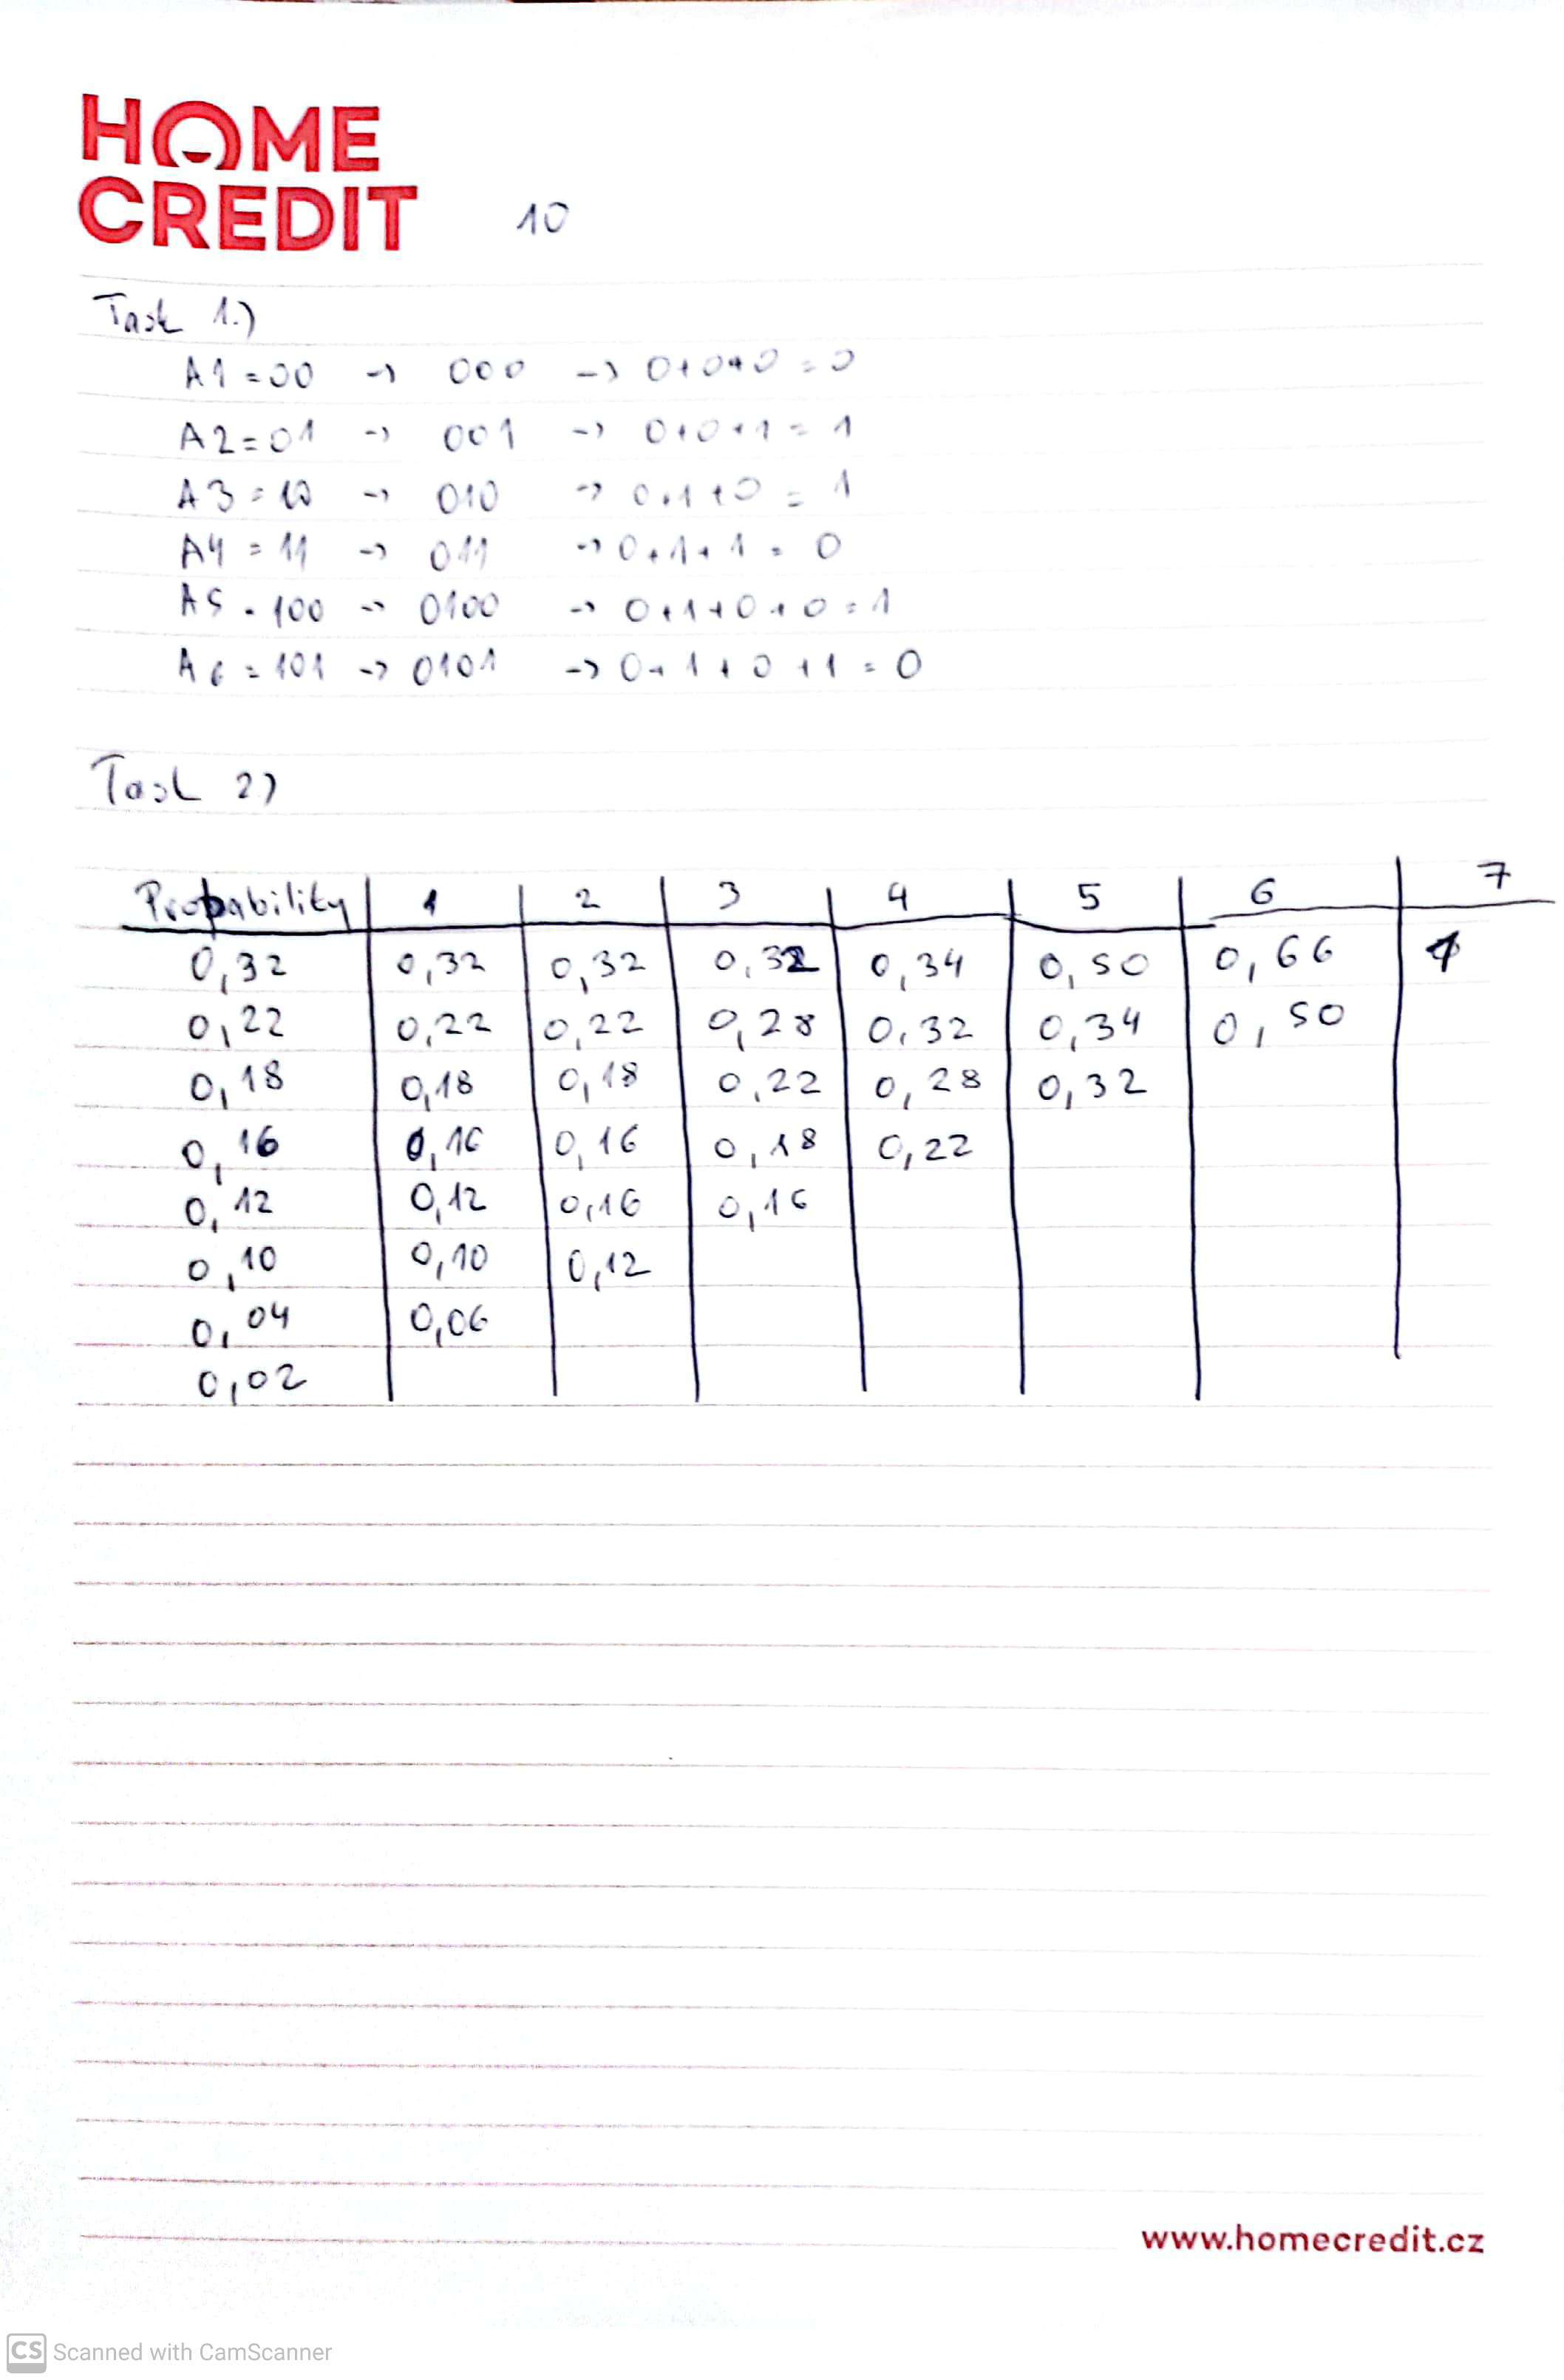 HOME
CREDIT 10
Task 1.)
A1 = 00 -> 000 -> 0+0+0 = 0
A2 = 01 -> 001 -> 0+0+1 = 1
A3 = 10 -> 010 -> 0+1+0 = 1
A4 = 11 -> 011 -> 0+1+1 = 0
A5 = 100 -> 0100 -> 0+1+0+0 = 1
A6 = 101 -> 0101 -> 0+1+0+1 = 0
Task 2)
Probability 1 2 3 4 5 6 7
0,32 0,32 0,32 0,32 0,34 0,50 0,66 1
0,22 0,22 0,22 0,28 0,32 0,34 0,50
0,18 0,18 0,18 0,22 0,28 0,32
0,16 0,16 0,16 0,18 0,22
0,12 0,12 0,16 0,16
0,10 0,10 0,12
0,04 0,06
0,02
www.homecredit.cz
CS Scanned with CamScanner